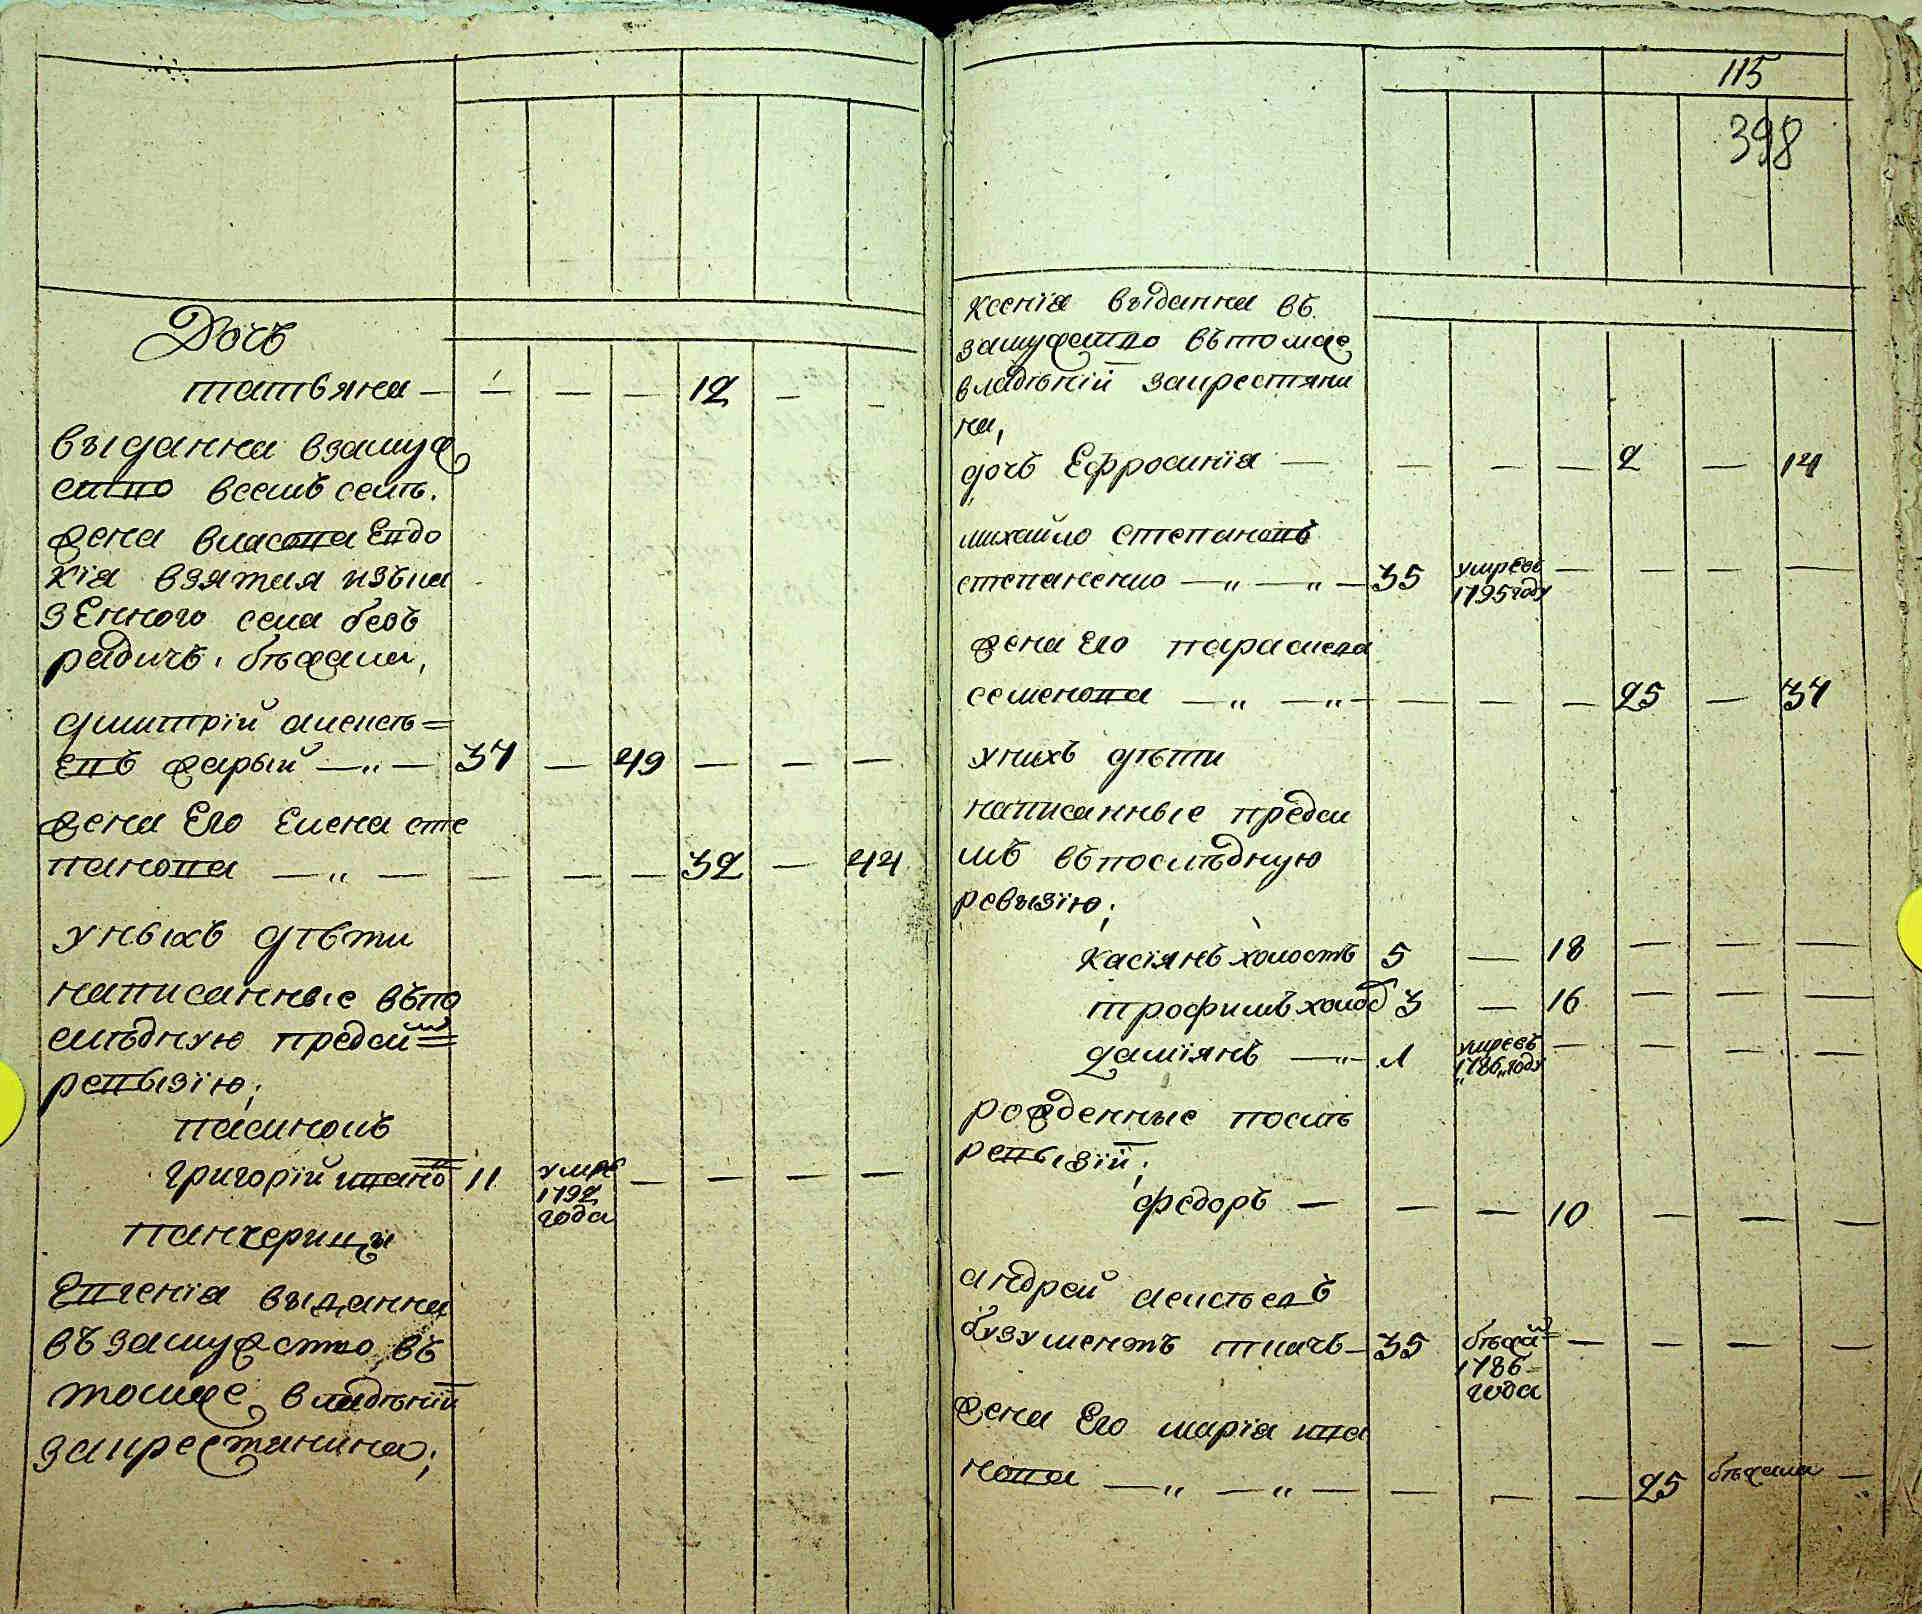 Дочь
татьяна — — — — 12 — —
выданна взамуж
ство всемъ селѣ.
жена власова Евдо
кія взятая изъка
зЕнного села безъ
радичъ, бѣжала,
дмитрій алексѣ=
евъ жарый — „ — 37 — 49 — — —
жена Его Елена сте
панова — „ — — — — 32 — 44
уныхъ дѣти
написанные въпо
слѣдную предсимъ
ревызію;
пасинокъ
григорій ивановъ 11 умре — — — —
1792
года
панчерицы
Евгенія выданна
въ замужство въ
томже владѣнїи
закрестянина;
115
398
ксенія выданна въ
замужство въ томже
владѣніи закрестяни
на,
дочь Ефросинїя — — — — 2 — 14
михайло степановъ
степаненко — „ — „ — 35 умреъ — — — —
1795 году
жена Его параскева
семенова — „ — „ — — — — 25 — 37
унихъ дѣти
написанные предси
мъ въпослѣдную
ревызїю;
Касїянъ холостъ 5 — 18 — — —
трофимъ холос 3 — 16 — — —
дамїянъ — „ 1 умреъ — — — —
1786„ году
рожденные послѣ
ревызїи;
федоръ — — — 10 — — —
андрей алексѣевъ
бузуменъ ткачъ — 35 бѣжа — — — —
1786
года
жена Его марїя ива
нова — „ — „ — — — — 25 бѣжала —